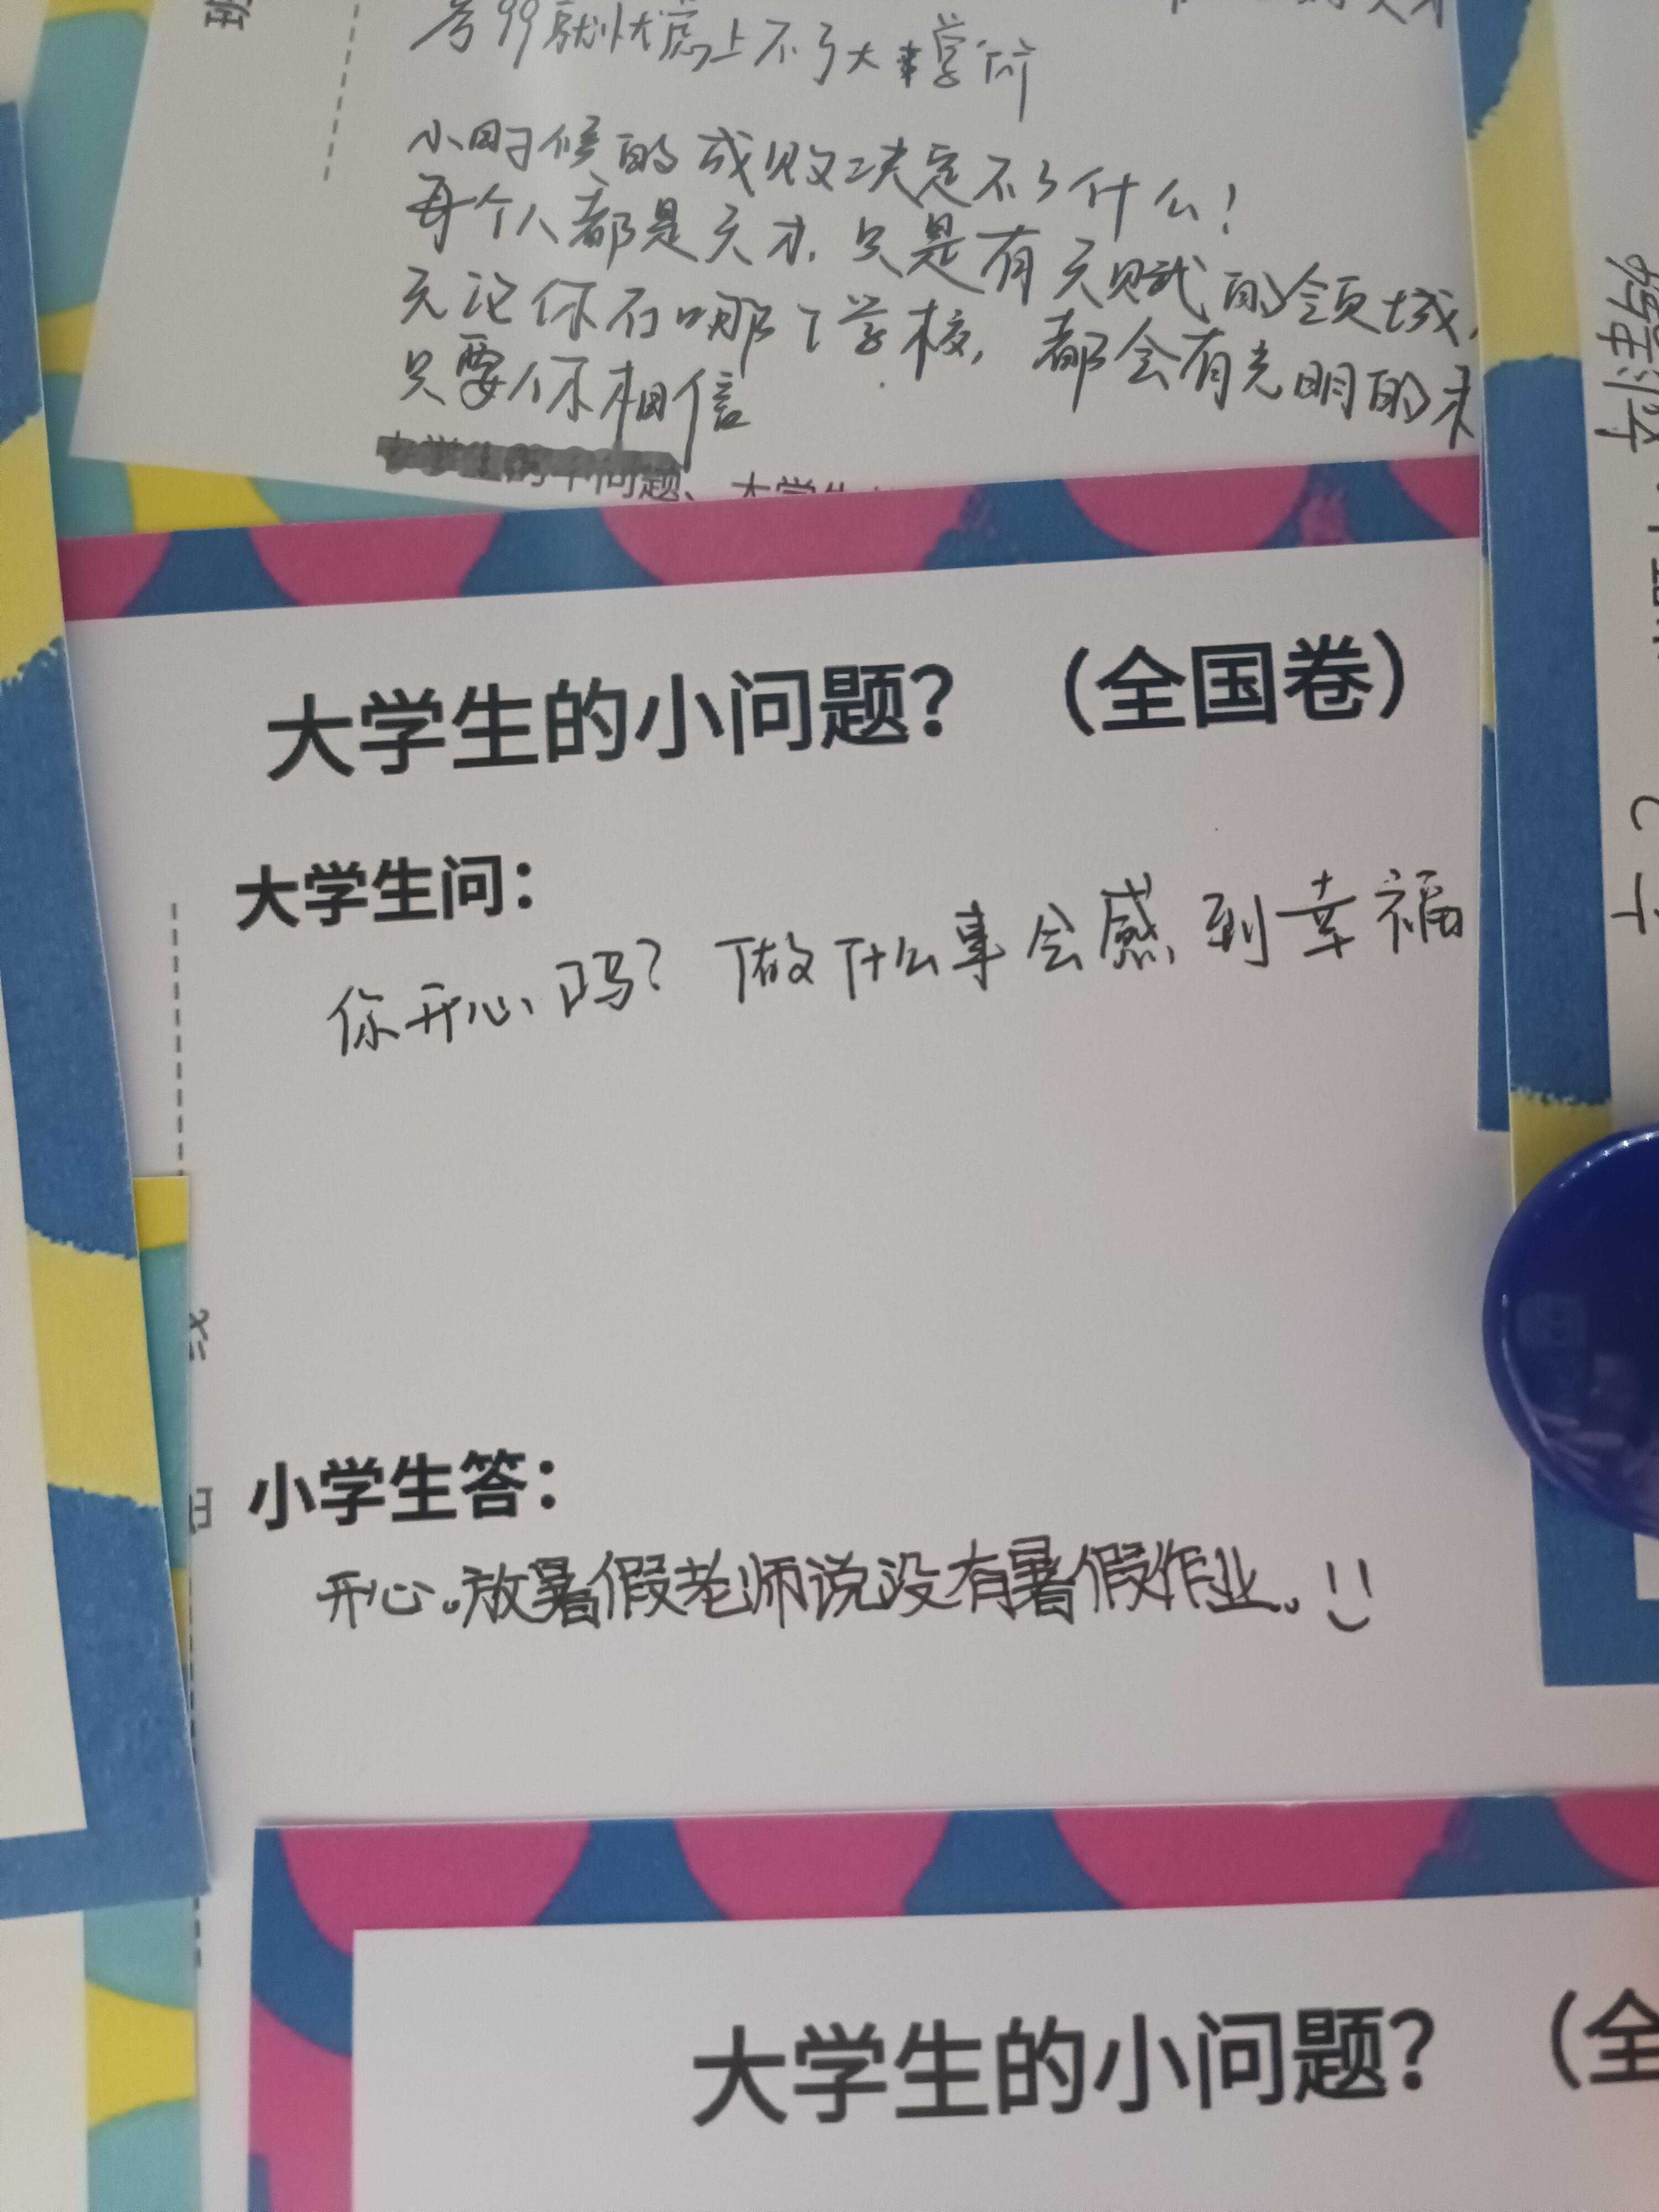 班
考99就忧虑上不了大学前
小时候的成败决定不了什么！
每个人都是天才，只是有天赋的领域，
无论你在哪个学校，都会有光明的未
只要你相信
大学生的小问题？（全国卷）
大学生问：
你开心吗？做什么事会感到幸福
小学生答：
开心。放暑假老师说没有暑假作业。!!
大学生的小问题？（全